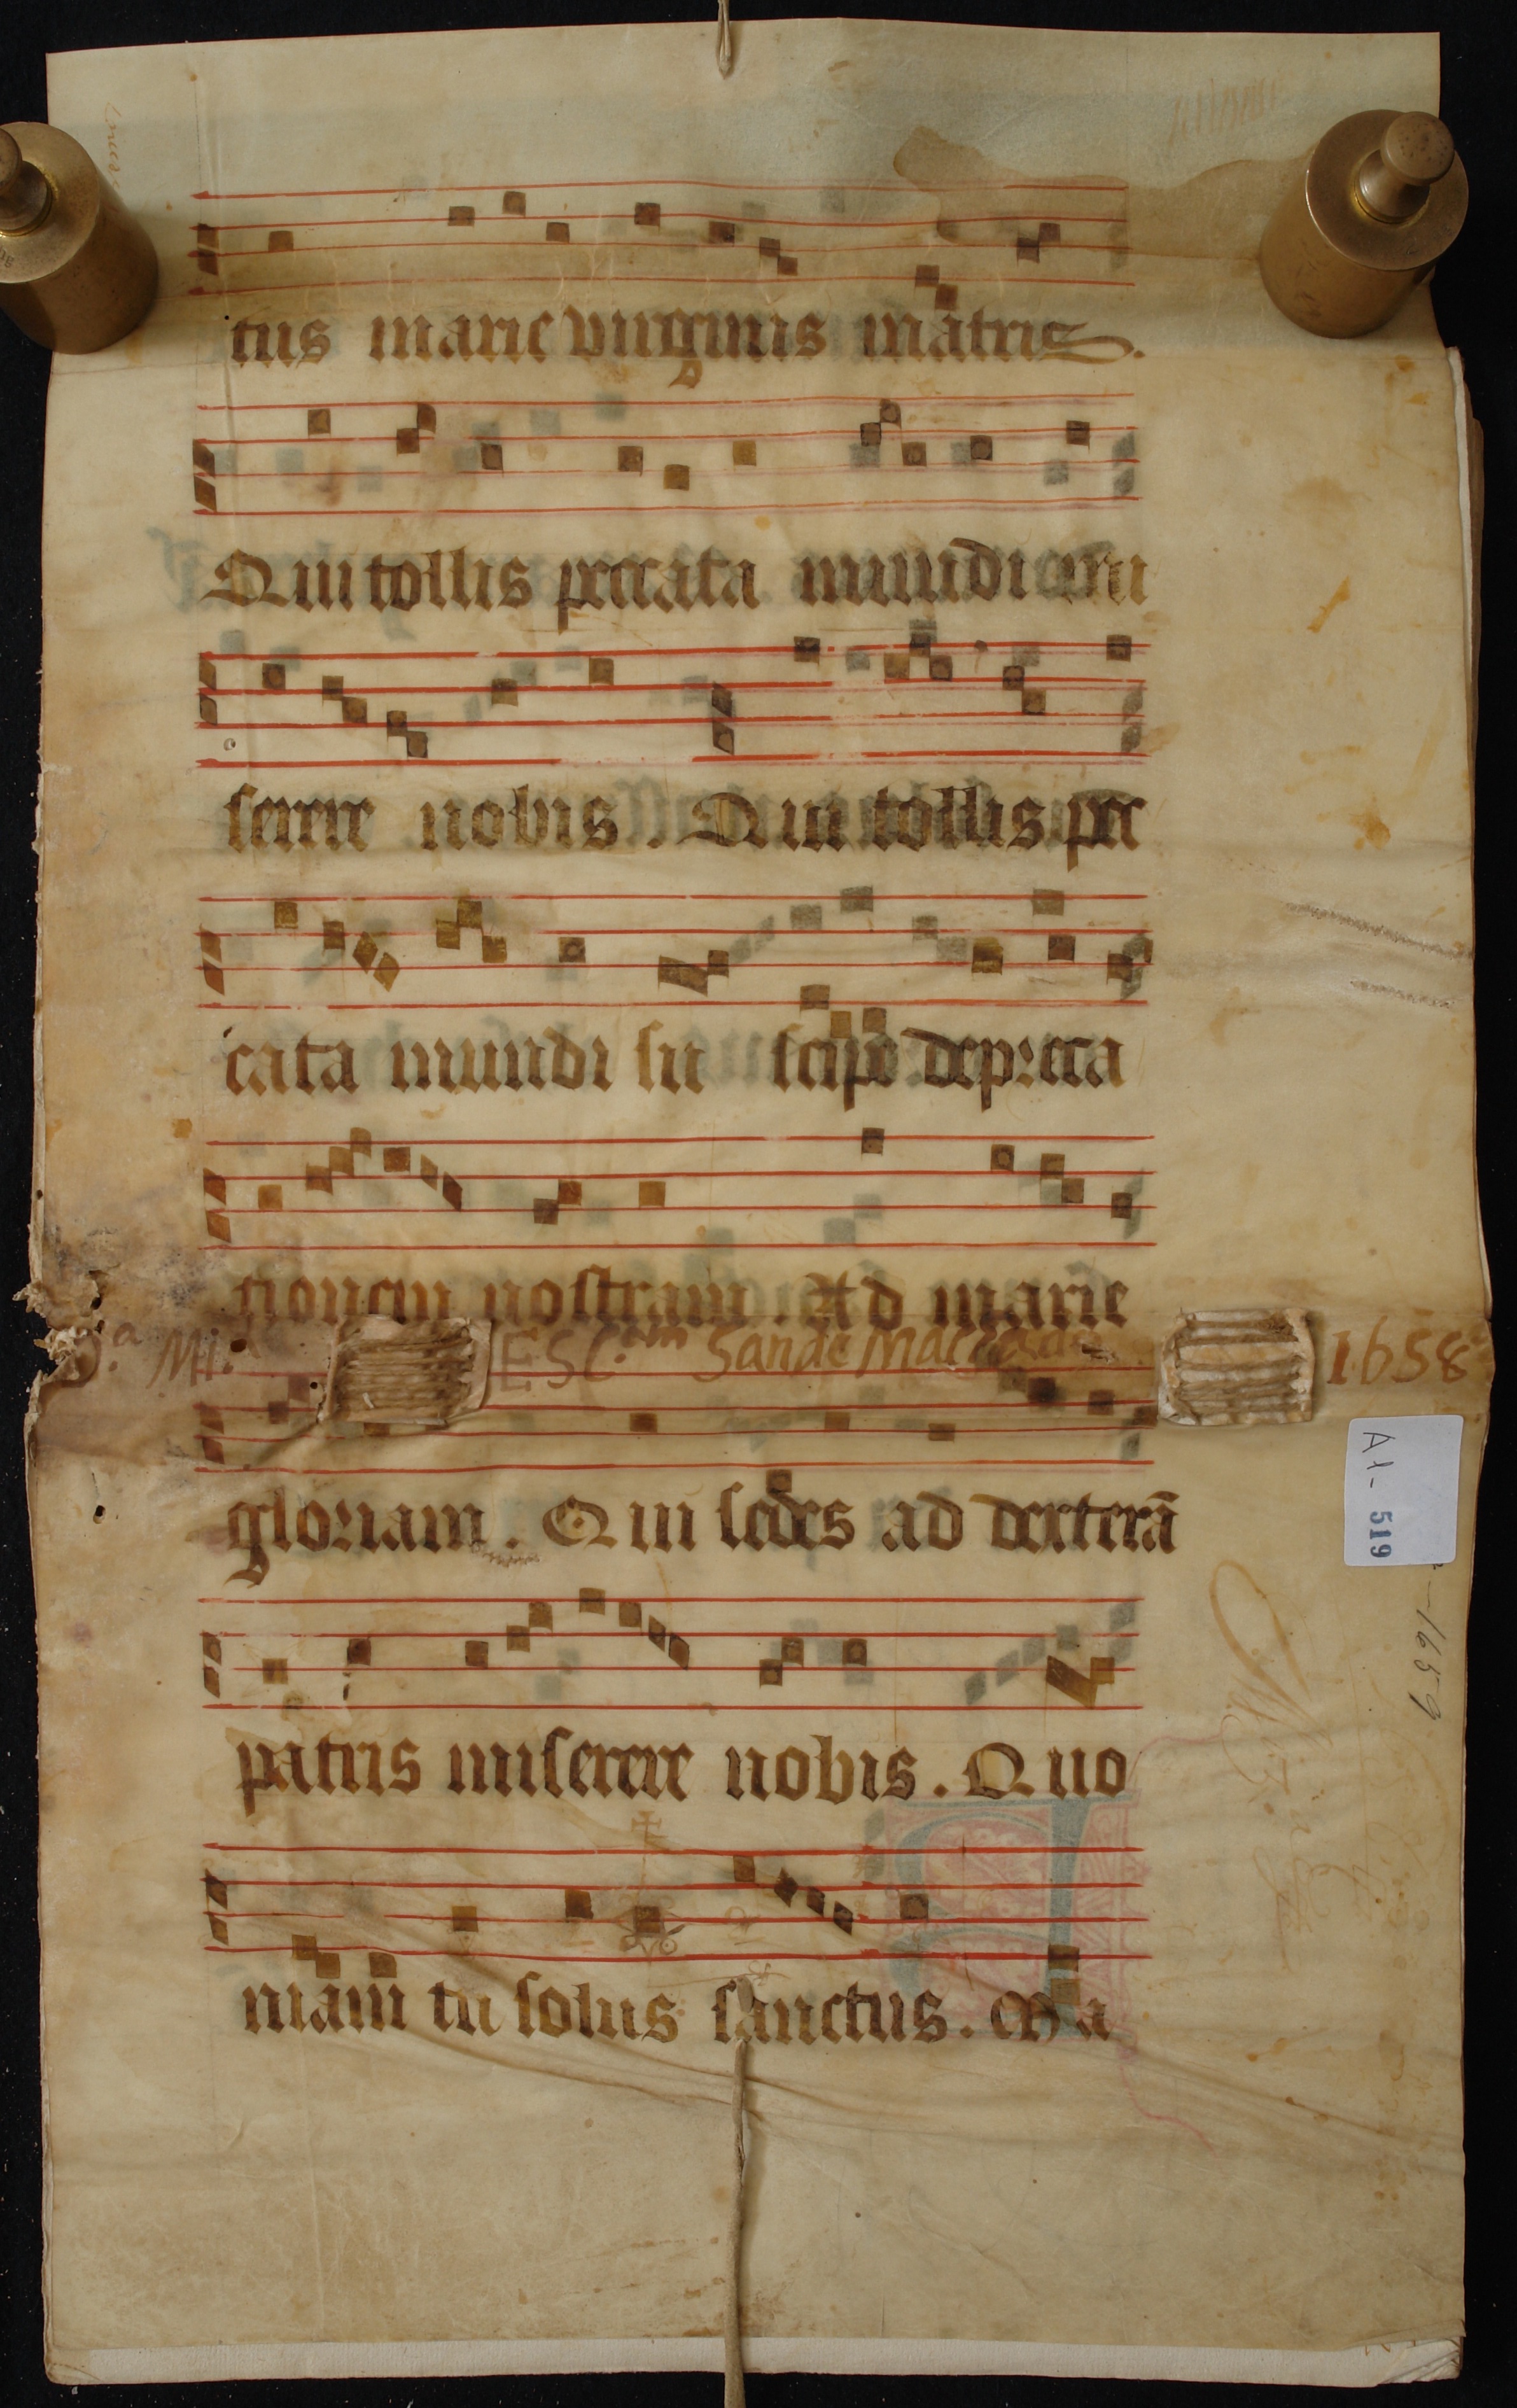 tus marie virginis matris.
Qui tollis peccata mundi mi
serere nobis. Qui tollis pec
cata mundi su scipe depreca
tionem nostram. Ad marie
ESC. Sande 1658
gloriam. Qui sedes ad dexterā
patris miserere nobis. Quo
niam tu solus sanctus. Ma
A1- 519
1659